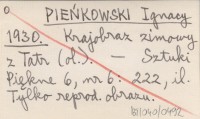 PIEŃKOWSKI Ignacy
1930. Krajobraz zimowy
z Tatr (ol.). — Sztuki
Piękne 6, nr 6: 222, il.
Tylko reprod. obrazu.
61/040/0492